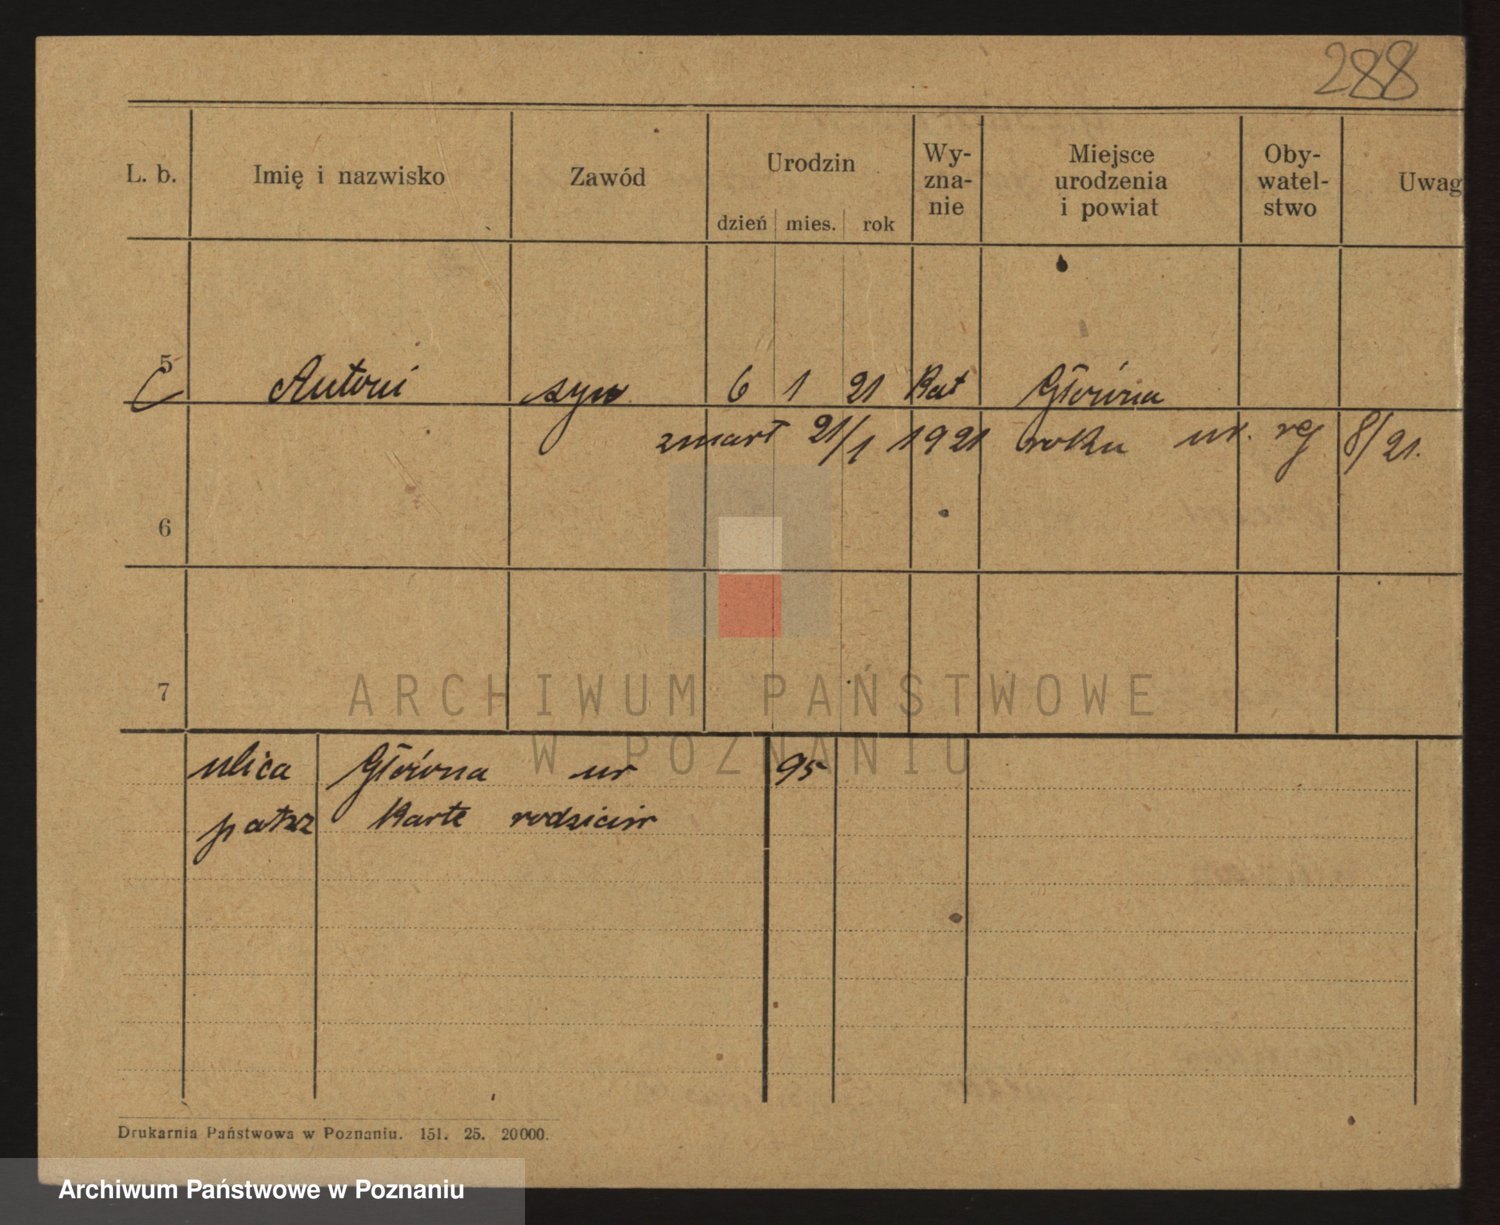 288
L. b. Imię i nazwisko Zawód Urodzin Wy-zna-nie Miejsce urodzenia i powiat Oby-watel-stwo Uwag
dzień mies. rok
5 Antoni syn 6 1 21 Kat Główna
zmarł 21/1 1921 roku nr. rej 8/21.
6
7
ARCHIWUM PAŃSTWOWE
W POZNANIU
ulica Główna nr 95
patrz Karte rodziców
Drukarnia Państwowa w Poznaniu. 151. 25. 20000.
Archiwum Państwowe w Poznaniu